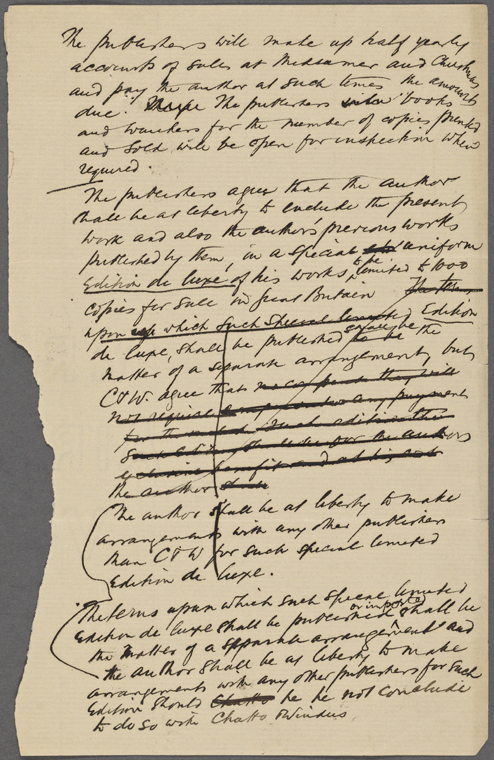 The publishers will make up half yearly
accounts of sales at Midsummer and Christmas
and pay the author at such times the amounts
due. The publishers books
and vouchers for the number of copies printed
and sold will be open for inspection when
required.
The publishers agree that the author
shall be at liberty to include the present
work and also the author's previous works
published by them, in a special uniform
Edition de luxe of his works to be limited to 1000
copies for sale in Great Britain The terms
upon which such special limited Edition
de luxe shall be published shall be the
matter of a separate arrangement, but
C & W. agree that they will
not require any payment
for the such edition the
for the authors
exclusive benefit and at his cost
the author
The author shall be at liberty to make
arrangements with any other publishers
than C & W for such special limited
Edition de luxe.
The terms upon which such special limited
Edition de luxe shall be published or imported shall be
the matter of a separate arrangement and
the author shall be at liberty to make
arrangements with any other publishers for such
Edition should Chatto he be not conclude
to do so with Chatto & Windus.